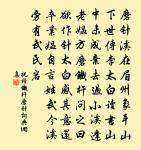 磨針溪在眉州象耳山
下世傳李太白讀書山
中未成棄去過小溪逢
老媼方磨鐵杵問之曰
欲作針太白感其意還
卒業媼自言姓武今溪
旁有武氏岩
祝穆鐵杵磨針詞典網
集